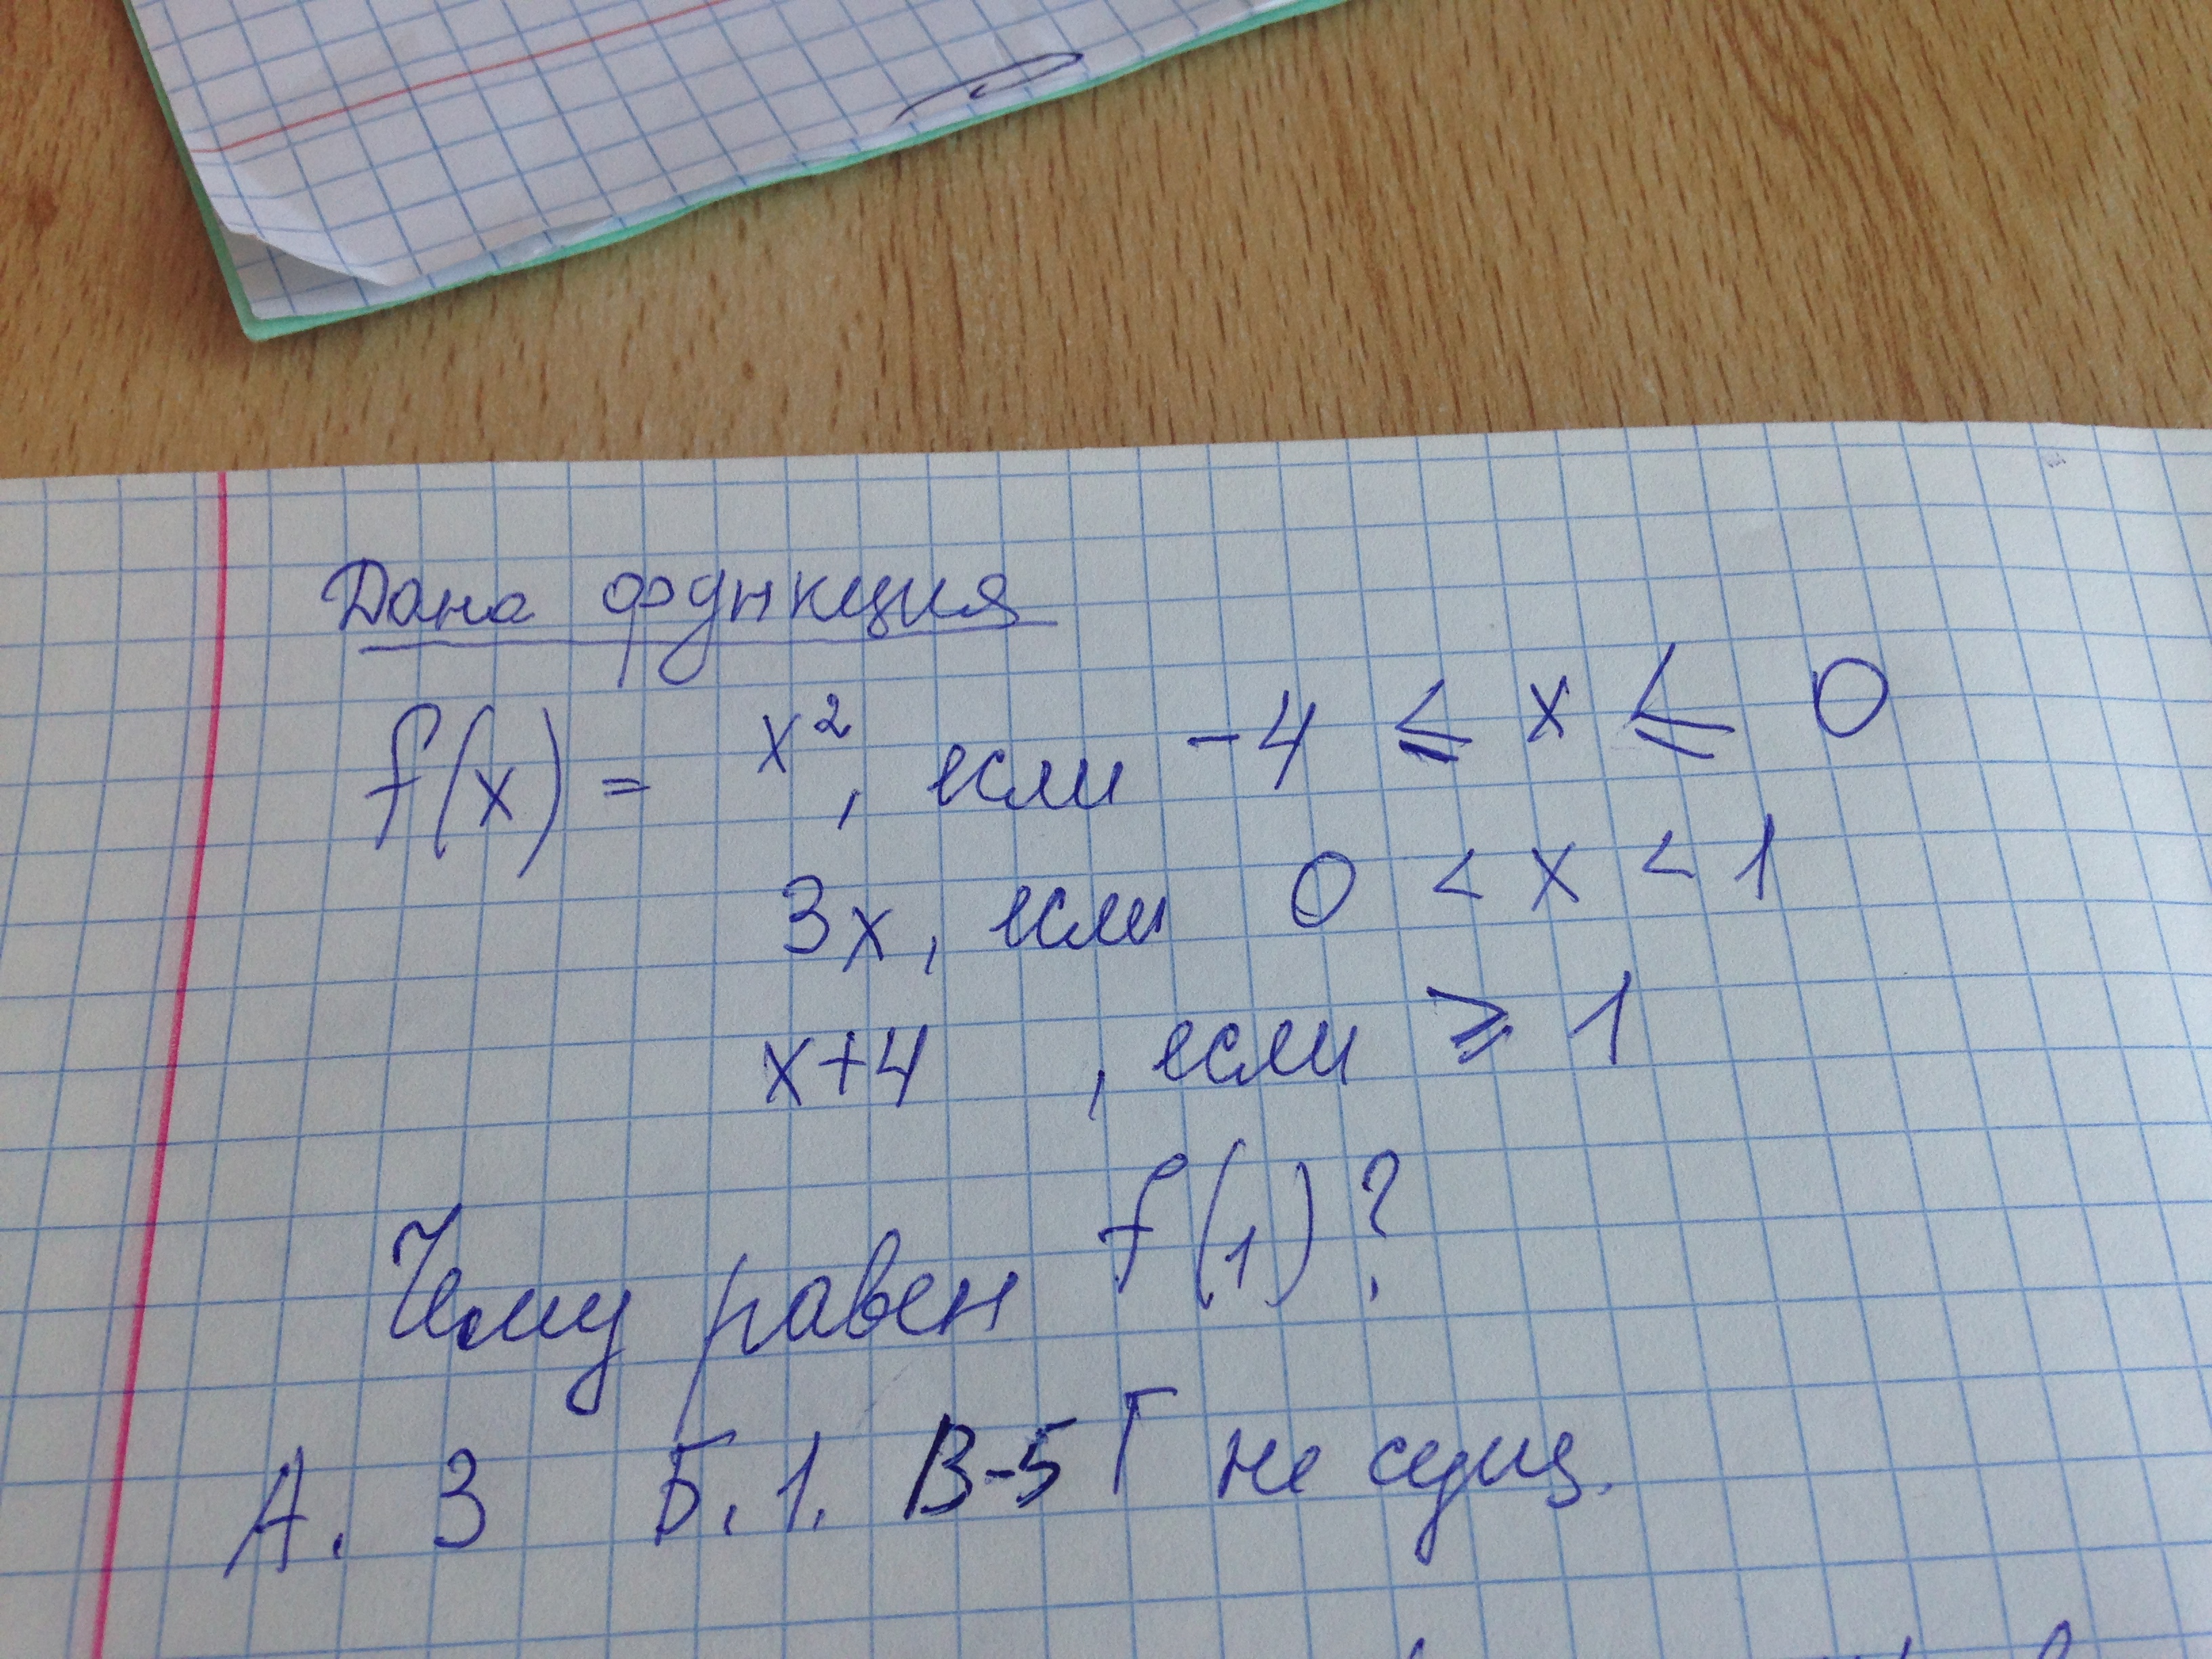 Дана функция
f(x) = x², если -4 ≤ x ≤ 0
3x, если 0 < x < 1
x+4 , если ≥ 1
Чему равен f(1)?
А. 3 Б. 1. В-5 Г не сущ.